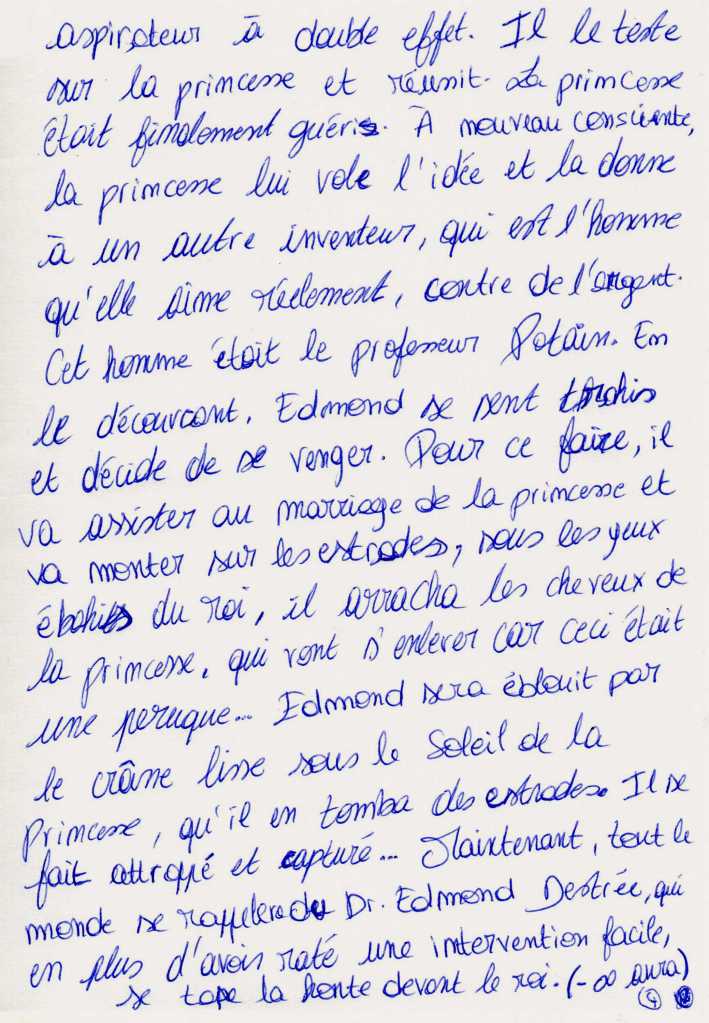 aspirateur à double effet. Il le teste
sur la princesse et réussit. La princesse
était finalement guérie. À nouveau consciente,
la princesse lui vole l'idée et la donne
à un autre inventeur, qui est l'homme
qu'elle aime réelement, contre de l'argent.
Cet homme était le professeur Potain. En
le découvrant, Edmond se sent trahis
et décide de se venger. Pour ce faire, il
va assister au marriage de la princesse et
va monter sur les estrades, sous les yeux
ébahis du roi, il arracha les cheveux de
la princesse, qui vont s'enlever car ceci était
une peruque... Edmond sera éblouit par
le crâne lisse sous le Soleil de la
Princesse, qu'il en tomba des estrades. Il se
fait attrappé et capturé... Maintenant, tout le
monde se rappelera du Dr. Edmond Destrée, qui
en plus d'avoir raté une intervention facile,
se tape la honte devant le roi. (-∞ aura)